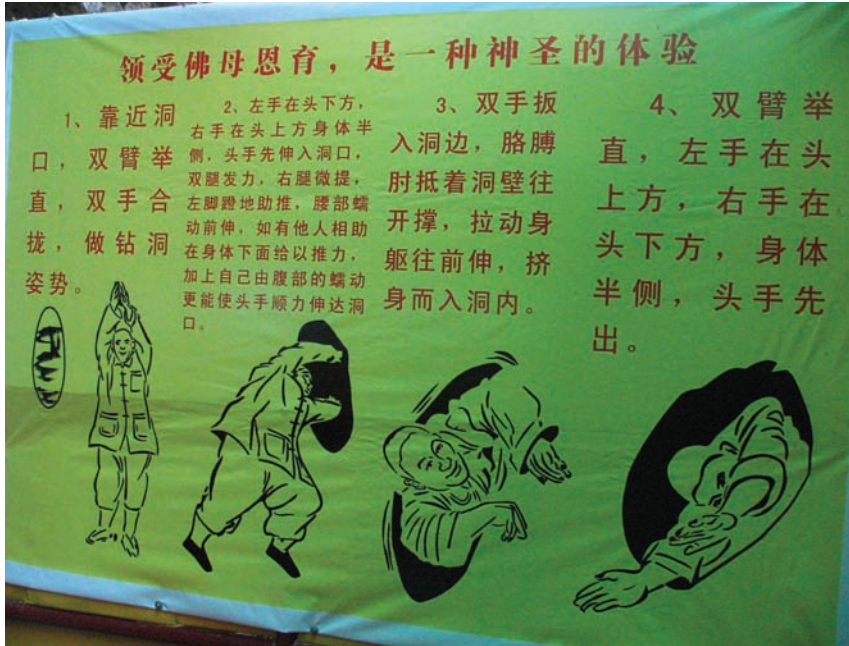 领受佛母恩育，是一种神圣的体验
1、靠近洞
口，双臂举
直，双手合
拢，做钻洞
姿势。
2、左手在头下方，
右手在头上方身体半
侧，头手先伸入洞口，
双腿发力，右腿微提，
左脚蹬地助推，腰部蠕
动前伸，如有他人相助
在身体下面给以推力，
加上自己由腹部的蠕动
更能使头手顺力伸达洞
口。
3、双手扳
入洞边，胳膊
肘抵着洞壁往
开撑，拉动身
躯往前伸，挤
身而入洞内。
4、双臂举
直，左手在头
上方，右手在
头下方，身体
半侧，头手先
出。